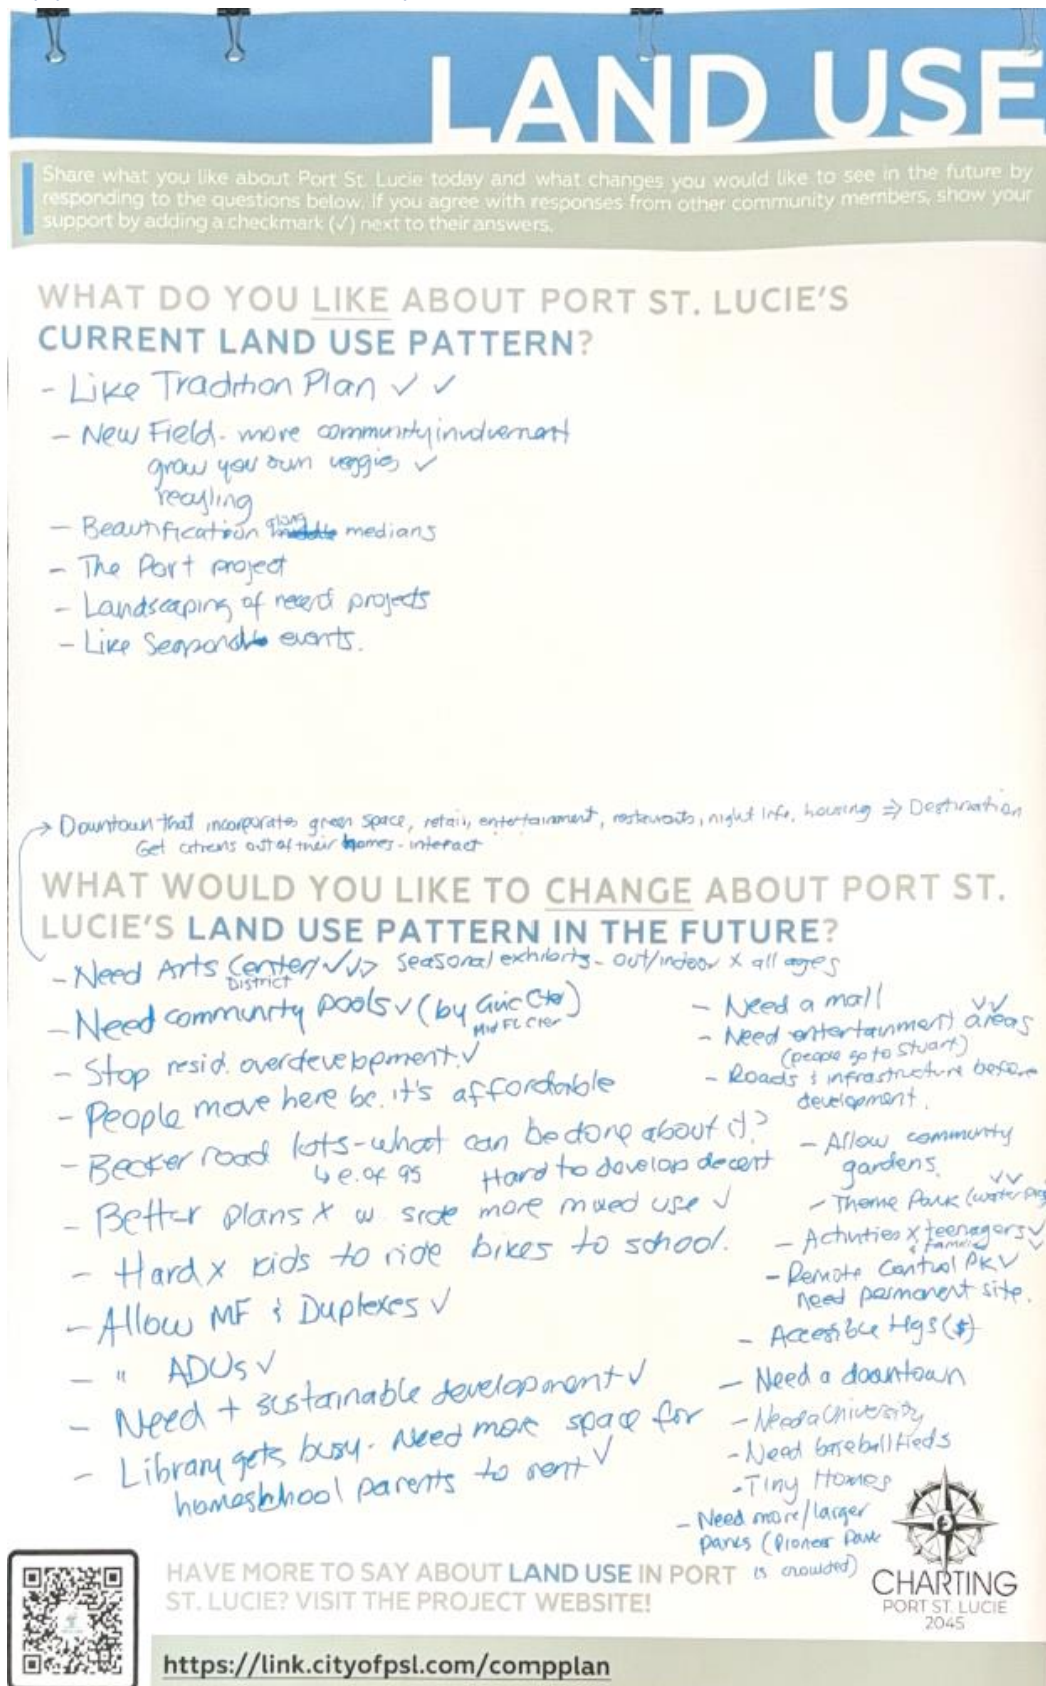 LAND USE
Share what you like about Port St. Lucie today and what changes you would like to see in the future by
responding to the questions below. If you agree with responses from other community members, show your
support by adding a checkmark (✓) next to their answers.
WHAT DO YOU LIKE ABOUT PORT ST. LUCIE'S
CURRENT LAND USE PATTERN?
- Like Tradition Plan ✓ ✓
- New Field - more community involvement
grow you own veggies ✓
recycling
- Beautification along medians
- The Port project
- Landscaping of recent projects
- Like events.
→ Downtown that incorporates green space, retail, entertainment, restaurants, night life, housing ⇒ Destination
Get citizens out of their homes - interact
WHAT WOULD YOU LIKE TO CHANGE ABOUT PORT ST.
LUCIE'S LAND USE PATTERN IN THE FUTURE?
- Need Arts Center/ ✓✓> seasonal exhibits - out/indoor x all ages
District
- Need community pools ✓ (by Civic Ctr)
Mid FL Cter
- Stop resid. overdevelopment. ✓
- People move here bc. it's affordable
- Becker road lots - what can be done about it?
↳ e. of 95 Hard to develop decent
- Better plans x w. side more mixed use ✓
- Hard x kids to ride bikes to school.
- Allow MF & Duplexes ✓
- " ADUs ✓
- Need + sustainable development ✓
- Library gets busy. Need more space for
homeschool parents to rent ✓
- Need a mall
- Need entertainment areas ✓✓
(people go to Stuart)
- Roads & infrastructure before
development.
- Allow community
gardens.
- Theme Park (water ✓✓
- Activities x teenagers ✓
& families ✓
- Remote Control Pk ✓
need permanent site.
- Accessible Hgs ($)
- Need a downtown
- Need a University
- Need baseball fieds
- Tiny Homes
- Need more/larger
parks (Pioneer Park
is crowded)
HAVE MORE TO SAY ABOUT LAND USE IN PORT
ST. LUCIE? VISIT THE PROJECT WEBSITE!
https://link.cityofpsl.com/compplan
CHARTING
PORT ST. LUCIE
2045